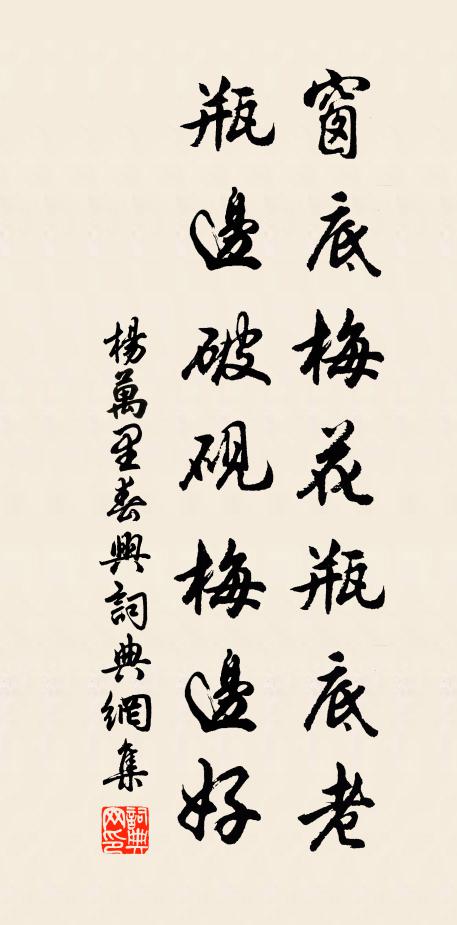 窗底梅花瓶底老
瓶邊破硯梅邊好
楊萬里春興詞典網集
詞典網印